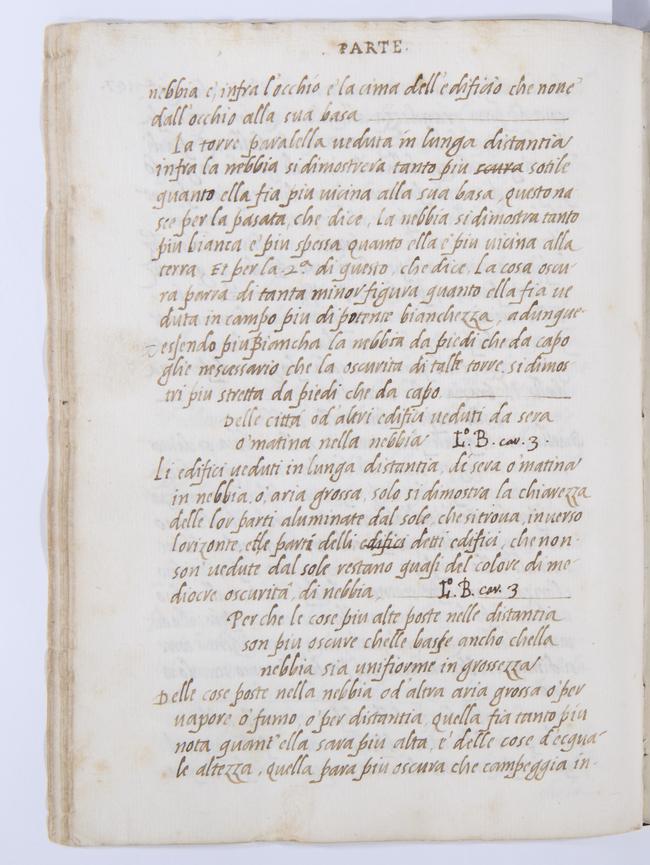 PARTE.
nebbia e, infra l'occhio e la cima dell'edifitio che none
dall'occhio alla sua basa
La torre paralella veduta in lunga distantia
infra la nebbia si dimostrera tanto piu scura sotile
quanto ella fia piu vicina alla sua basa, questo na
sce per la pasata, che dice, la nebbia si dimostra tanto
piu bianca e piu spessa quanto ella e piu vicina alla
terra. Et per la .2.ª di questo, che dice. La cosa oscu-
ra parra di tanta minor figura quanto ella fia ve
duta in campo piu di potente bianchezza, adunque
essendo piu biancha la nebbia da piedi che da capo
glie nescessario che la oscurita di talle torre, si dimos
tri piu stretta da piedi che da capo
Delle città od'altri edifitii veduti da sera
o' matina nella nebbia L.º B. car. 3.
Li edifici veduti in lunga distantia, de sera o' matina
in nebbia, o' aria grossa, solo si dimostra la chiarezza
delle lor parti aluminate dal sole, che si trova, inverso
l'orizonte, et le parti delli edifici detti edifici, che non
son' vedute dal sole restano quasi del colore di me-
diocre oscurità, di nebbia L.º B. car. 3
Perche le cose piu alte poste nelle distantia
son piu oscure chelle basse ancho chella
nebbia sia unifiorme in grossezza
Delle cose poste nella nebbia od'altra aria grossa o' per
vapore o' fumo, o' per distantia, quella fia tanto piu
nota quant'ella sara piu alta, e' delle cose d'equa-
le altezza, quella para piu oscura che campeggia in-